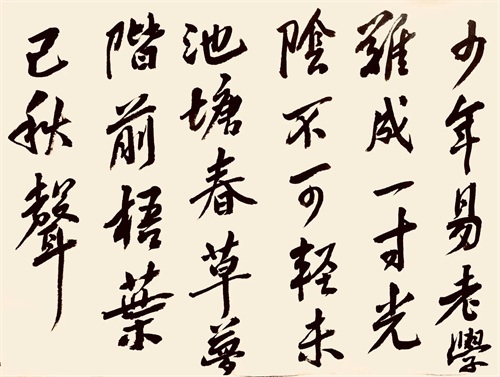 少年易老學
難成一寸光
陰不可輕未
池塘春草夢
階前梧葉
已秋聲